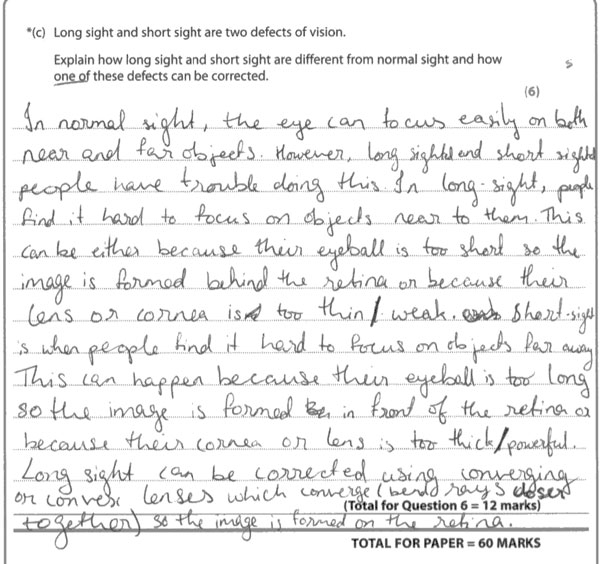 *(c) Long sight and short sight are two defects of vision.
Explain how long sight and short sight are different from normal sight and how
one of these defects can be corrected.
5
(6)
In normal sight, the eye can focus easily on both
near and far objects. However, long sighted and short sighted
people have trouble doing this. In long-sight, people
find it hard to focus on objects near to them. This
can be either because their eyeball is too short so the
image is formed behind the retina or because their
lens or cornea is too thin/weak. Short-sight
is when people find it hard to focus on objects far away
This can happen because their eyeball is too long
so the image is formed in front of the retina or
because their cornea or lens is too thick/powerful.
Long sight can be corrected using converging
or convex lenses which converge (bend rays closer
(Total for Question 6 = 12 marks)
together) so the image is formed on the retina.
TOTAL FOR PAPER = 60 MARKS